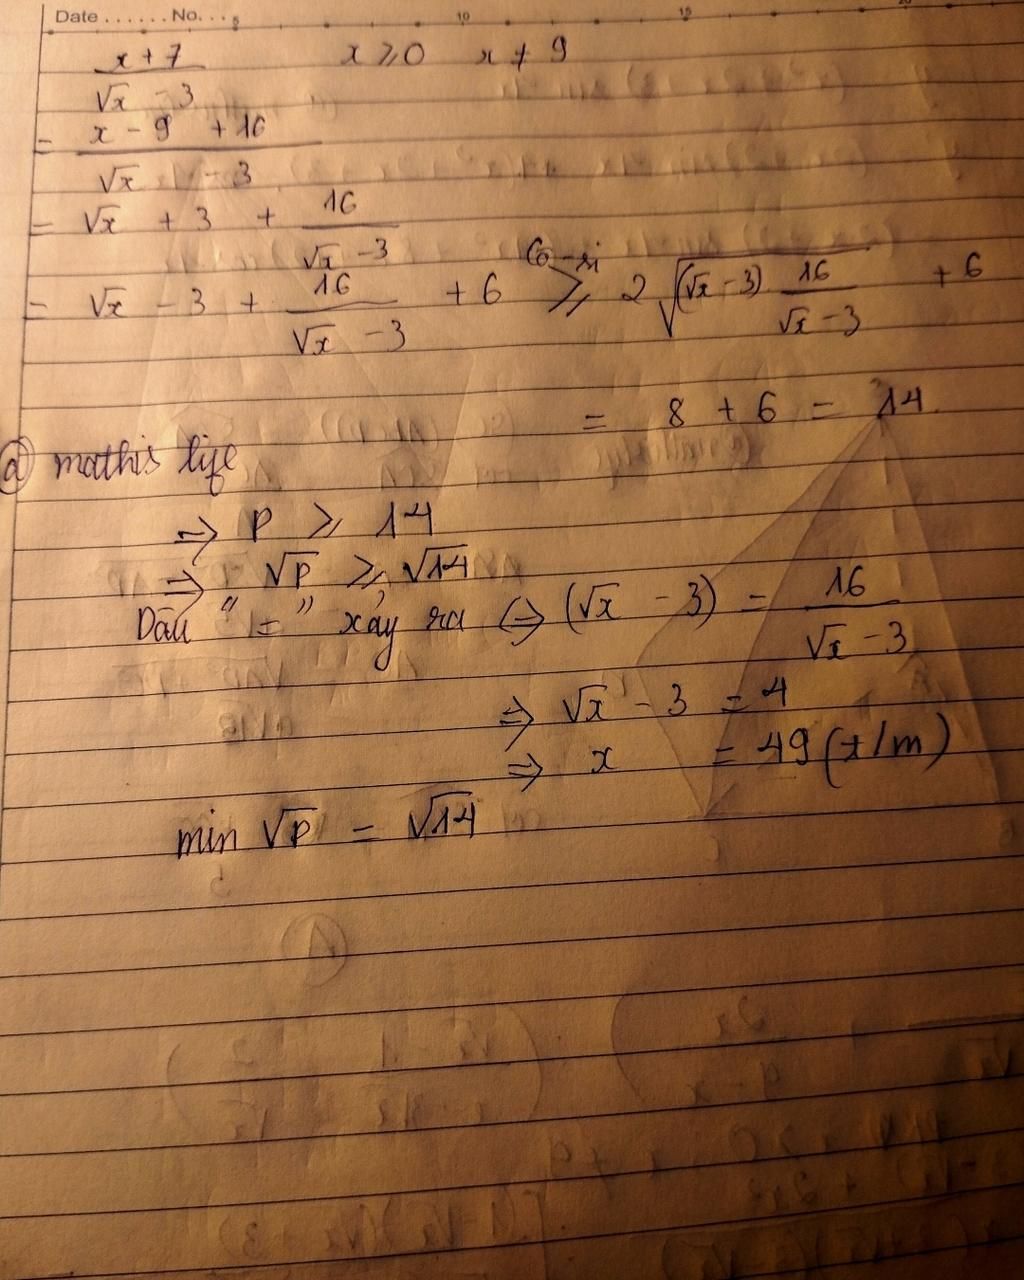 Date ...... No. ... 5 10 15 20
x + 7 / √x - 3    x ⩾ 0    x ≠ 9
= x - 9 + 16 / √x - 3
= √x + 3 + 16 / √x - 3
= √x - 3 + 16 / √x - 3 + 6 ⩾ (Cô-si) 2 √((√x - 3) 16 / √x - 3) + 6
= 8 + 6 = 14
@ mathis life
=> P ⩾ 14
=> √P ⩾ √14
Dấu "=" xảy ra <=> (√x - 3) = 16 / √x - 3
=> √x - 3 = 4
=> x = 49 (t/m)
min √P = √14